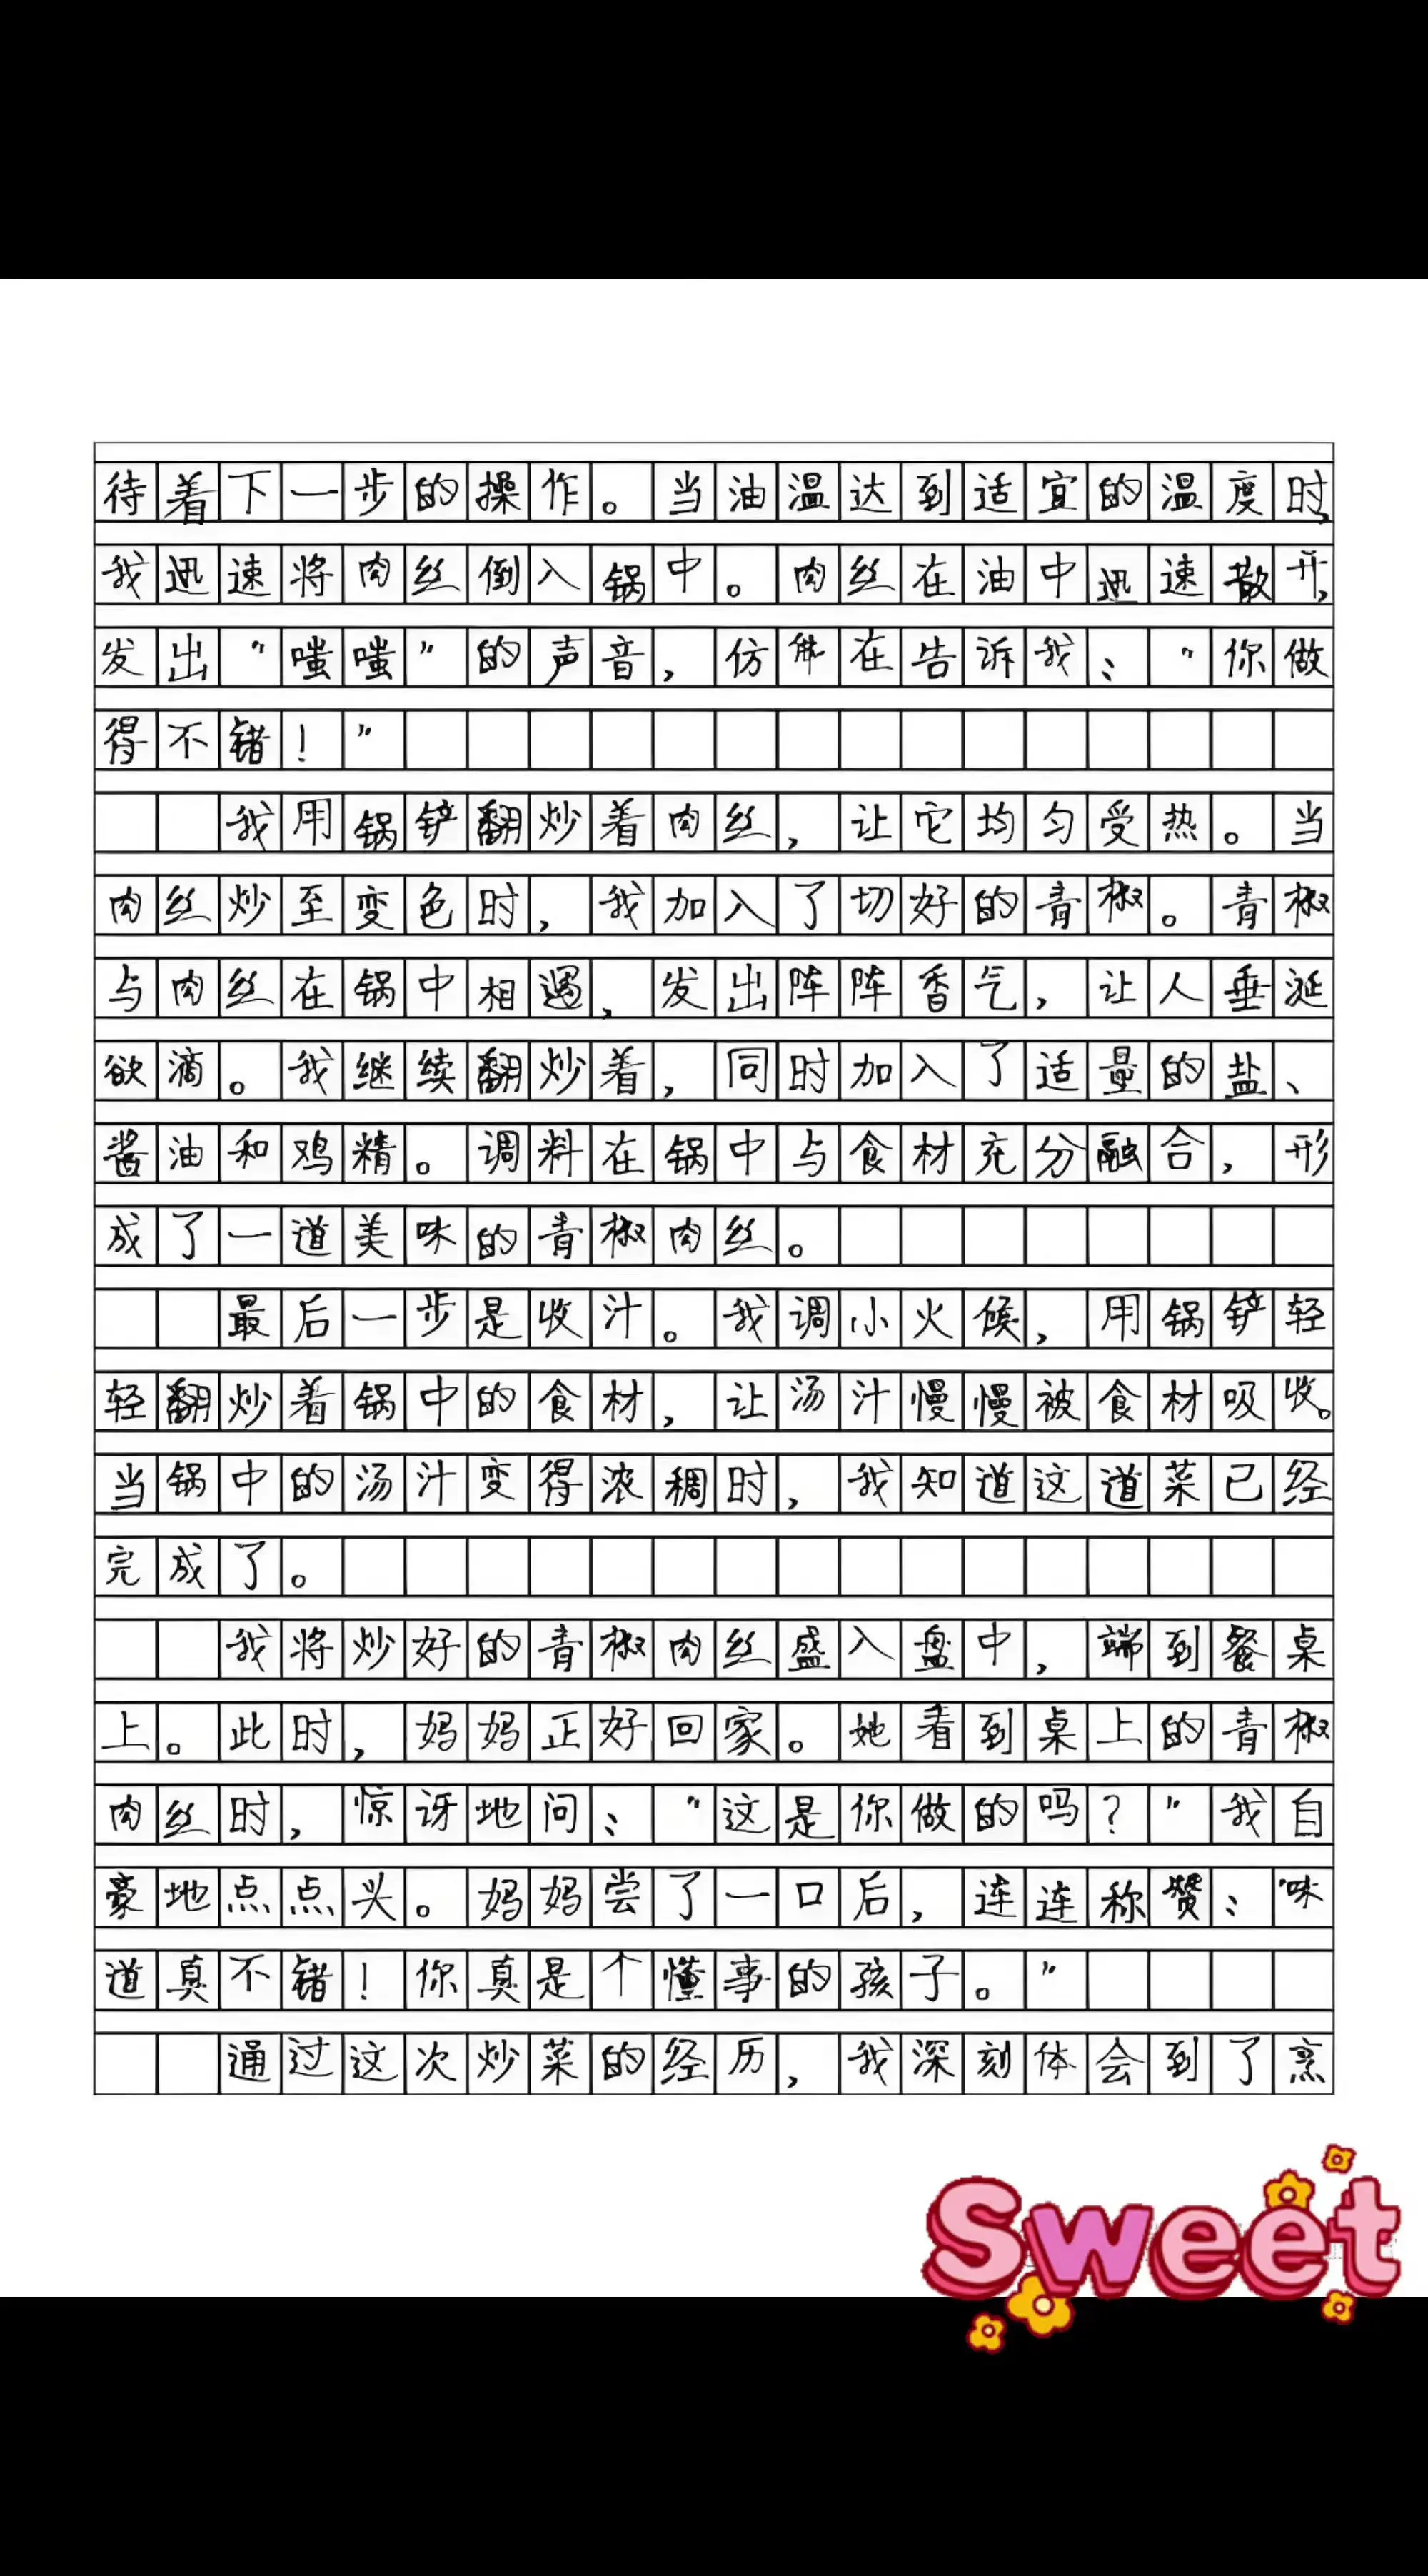 待着下一步的操作。当油温达到适宜的温度时,
我迅速将肉丝倒入锅中。肉丝在油中迅速散开,
发出“嗤嗤”的声音，仿佛在告诉我：“你做
得不错！”
我用锅铲翻炒着肉丝，让它均匀受热。当
肉丝炒至变色时，我加入了切好的青椒。青椒
与肉丝在锅中相遇，发出阵阵香气，让人垂涎
欲滴。我继续翻炒着，同时加入了适量的盐、
酱油和鸡精。调料在锅中与食材充分融合，形
成了一道美味的青椒肉丝。
最后一步是收汁。我调小火候，用锅铲轻
轻翻炒着锅中的食材，让汤汁慢慢被食材吸收。
当锅中的汤汁变得浓稠时，我知道这道菜已经
完成了。
我将炒好的青椒肉丝盛入盘中，端到餐桌
上。此时，妈妈正好回家。她看到桌上的青椒
肉丝时，惊讶地问：“这是你做的吗？”我自
豪地点点头。妈妈尝了一口后，连连称赞：“味
道真不错！你真是个懂事的孩子。”
通过这次炒菜的经历，我深刻体会到了烹
Sweet